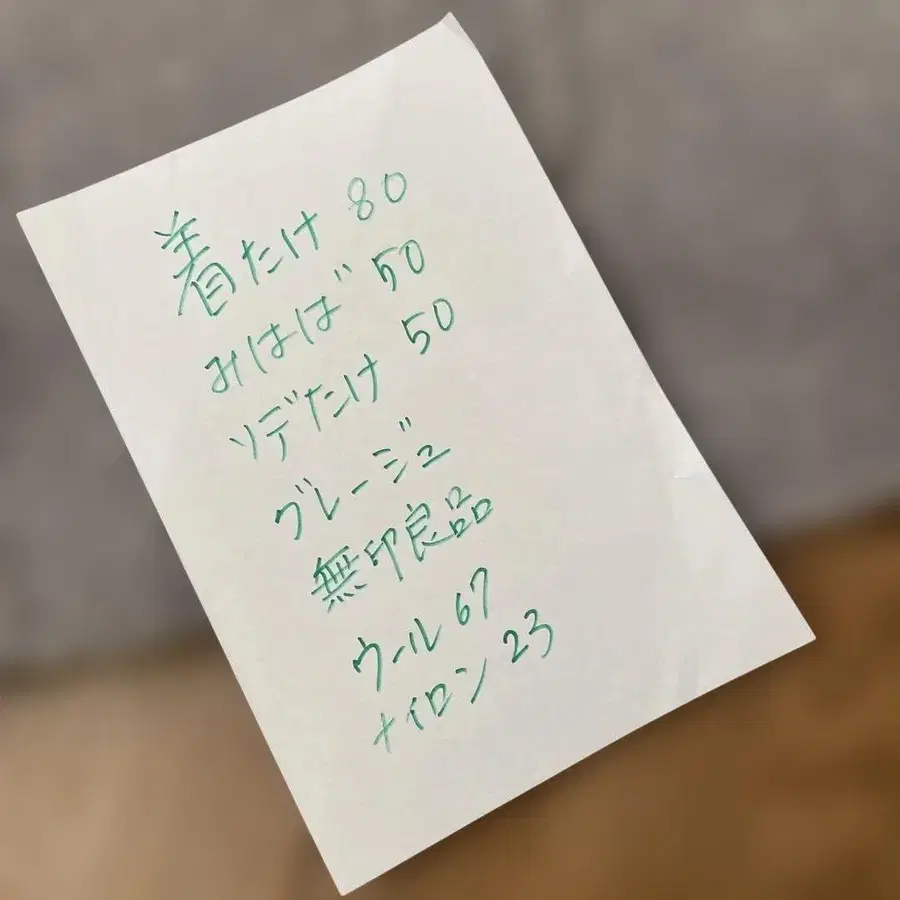 着たけ 80
みはば 50
ソデたけ 50
グレージュ
無印良品
ウール 67
ナイロン 23